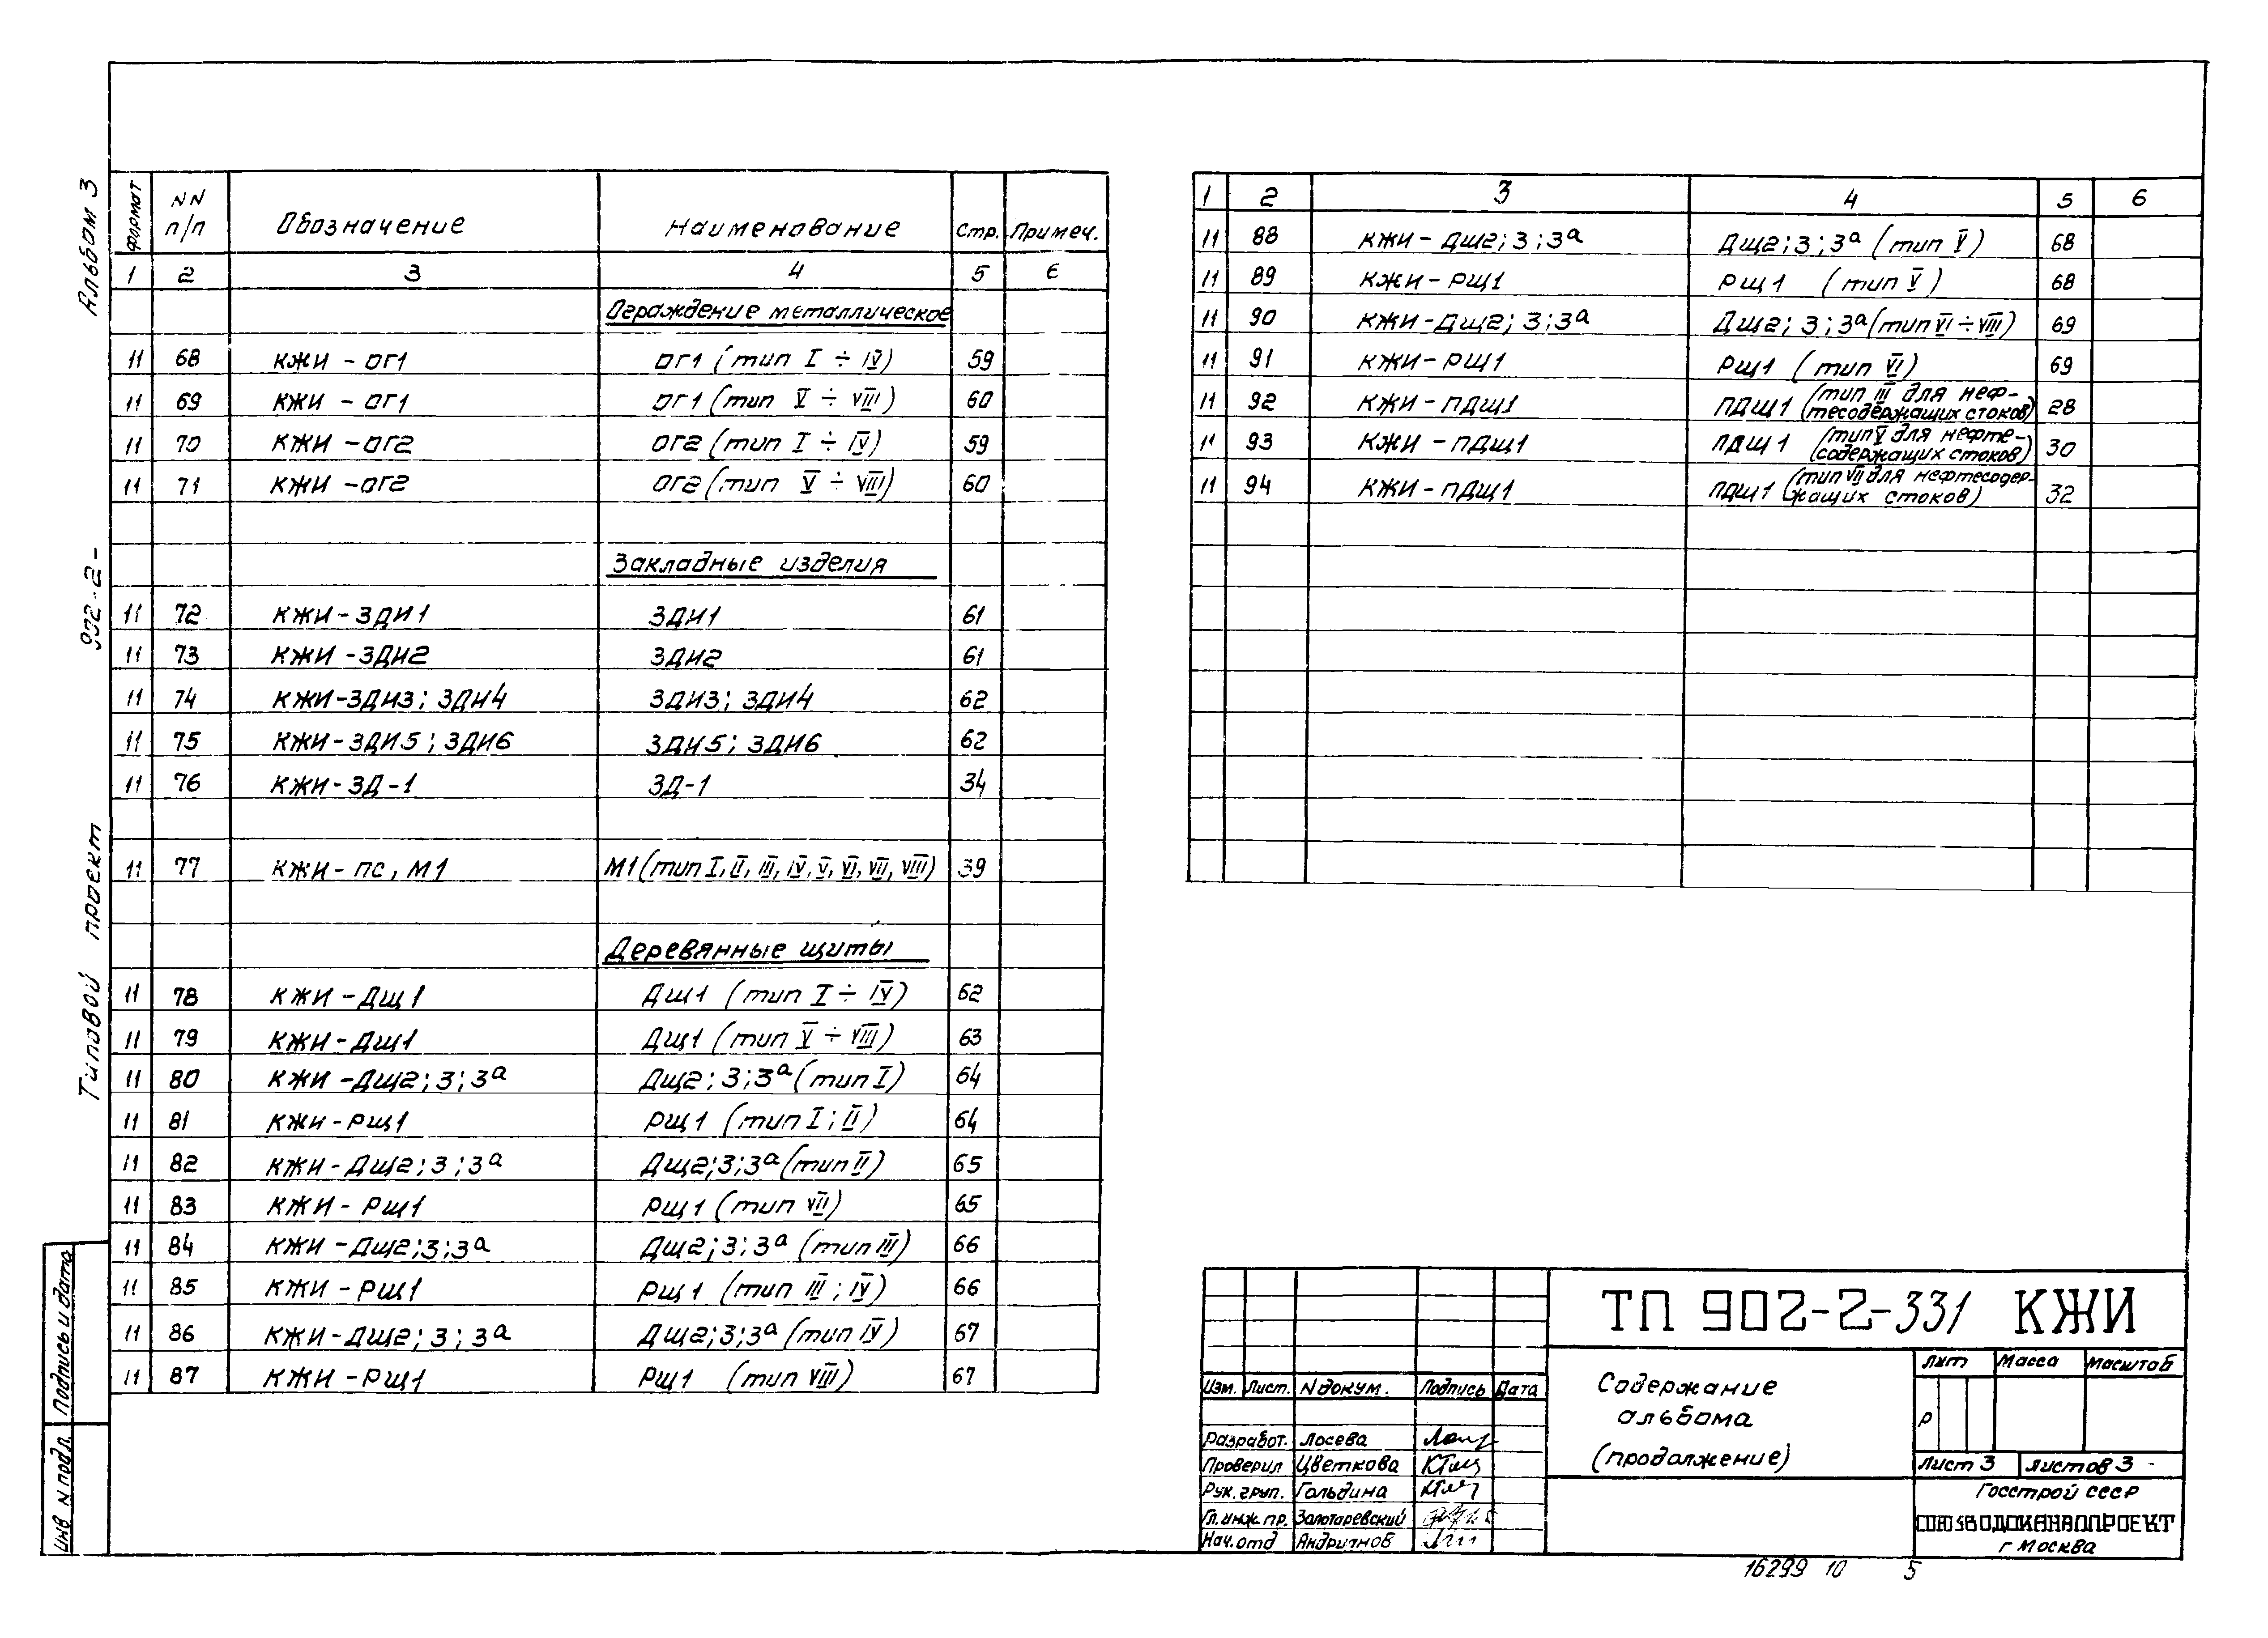 Альбом 3
902-2-
Типовой проект
Подпись и дата
Инв N подл.
Формат | NN п/п | Обозначение | Наименование | Стр. | Примеч.
1 | 2 | 3 | 4 | 5 | 6
Ограждение металлическое
11 | 68 | КЖИ - ОГ1 | ОГ1 (тип I ÷ IV) | 59
11 | 69 | КЖИ - ОГ1 | ОГ1 (тип V ÷ VIII) | 60
11 | 70 | КЖИ - ОГ2 | ОГ2 (тип I ÷ IV) | 59
11 | 71 | КЖИ - ОГ2 | ОГ2 (тип V ÷ VIII) | 60
Закладные изделия
11 | 72 | КЖИ - ЗДИ1 | ЗДИ1 | 61
11 | 73 | КЖИ - ЗДИ2 | ЗДИ2 | 61
11 | 74 | КЖИ-ЗДИ3; ЗДИ4 | ЗДИ3; ЗДИ4 | 62
11 | 75 | КЖИ-ЗДИ5; ЗДИ6 | ЗДИ5; ЗДИ6 | 62
11 | 76 | КЖИ - ЗД - 1 | ЗД-1 | 34
11 | 77 | КЖИ - ПС, М1 | М1 (тип I, II, III, IV, V, VI, VII, VIII) | 39
Деревянные щиты
11 | 78 | КЖИ - ДЩ1 | ДЩ1 (тип I ÷ IV) | 62
11 | 79 | КЖИ - ДЩ1 | ДЩ1 (тип V ÷ VIII) | 63
11 | 80 | КЖИ - ДЩ2; 3; 3а | ДЩ2; 3; 3а (тип I) | 64
11 | 81 | КЖИ - РЩ1 | РЩ1 (тип I; II) | 64
11 | 82 | КЖИ - ДЩ2; 3; 3а | ДЩ2; 3; 3а (тип II) | 65
11 | 83 | КЖИ - РЩ1 | РЩ1 (тип VII) | 65
11 | 84 | КЖИ - ДЩ2; 3; 3а | ДЩ2; 3; 3а (тип III) | 66
11 | 85 | КЖИ - РЩ1 | РЩ1 (тип III; IV) | 66
11 | 86 | КЖИ - ДЩ2; 3; 3а | ДЩ2; 3; 3а (тип IV) | 67
11 | 87 | КЖИ - РЩ1 | РЩ1 (тип VIII) | 67
1 | 2 | 3 | 4 | 5 | 6
11 | 88 | КЖИ - ДЩ2; 3; 3а | ДЩ2; 3; 3а (тип V) | 68
11 | 89 | КЖИ - РЩ1 | РЩ1 (тип V) | 68
11 | 90 | КЖИ - ДЩ2; 3; 3а | ДЩ2; 3; 3а (тип VI ÷ VIII) | 69
11 | 91 | КЖИ - РЩ1 | РЩ1 (тип VI) | 69
11 | 92 | КЖИ - ПДЩ1 | ПДЩ1 (тип III для неф-
тесодержащих стоков) | 28
11 | 93 | КЖИ - ПДЩ1 | ПДЩ1 (тип V для нефте-
содержащих стоков) | 30
11 | 94 | КЖИ - ПДЩ1 | ПДЩ1 (тип VII для нефтесодер-
жащих стоков) | 32
ТП 902-2-331 КЖИ
Изм. | Лист. | N докум. | Подпись | Дата
Разработ. | Лосева
Проверил | Цветкова
Рук. груп. | Гольдина
Гл. инж. пр. | Золотаревский
Нач. отд
Содержание
альбома
(продолжение)
Лит | Масса | Масштаб
Р
Лист 3 | Листов 3
Госстрой СССР
СОЮЗВОДОКАНАЛПРОЕКТ
г Москва
16299 10 5